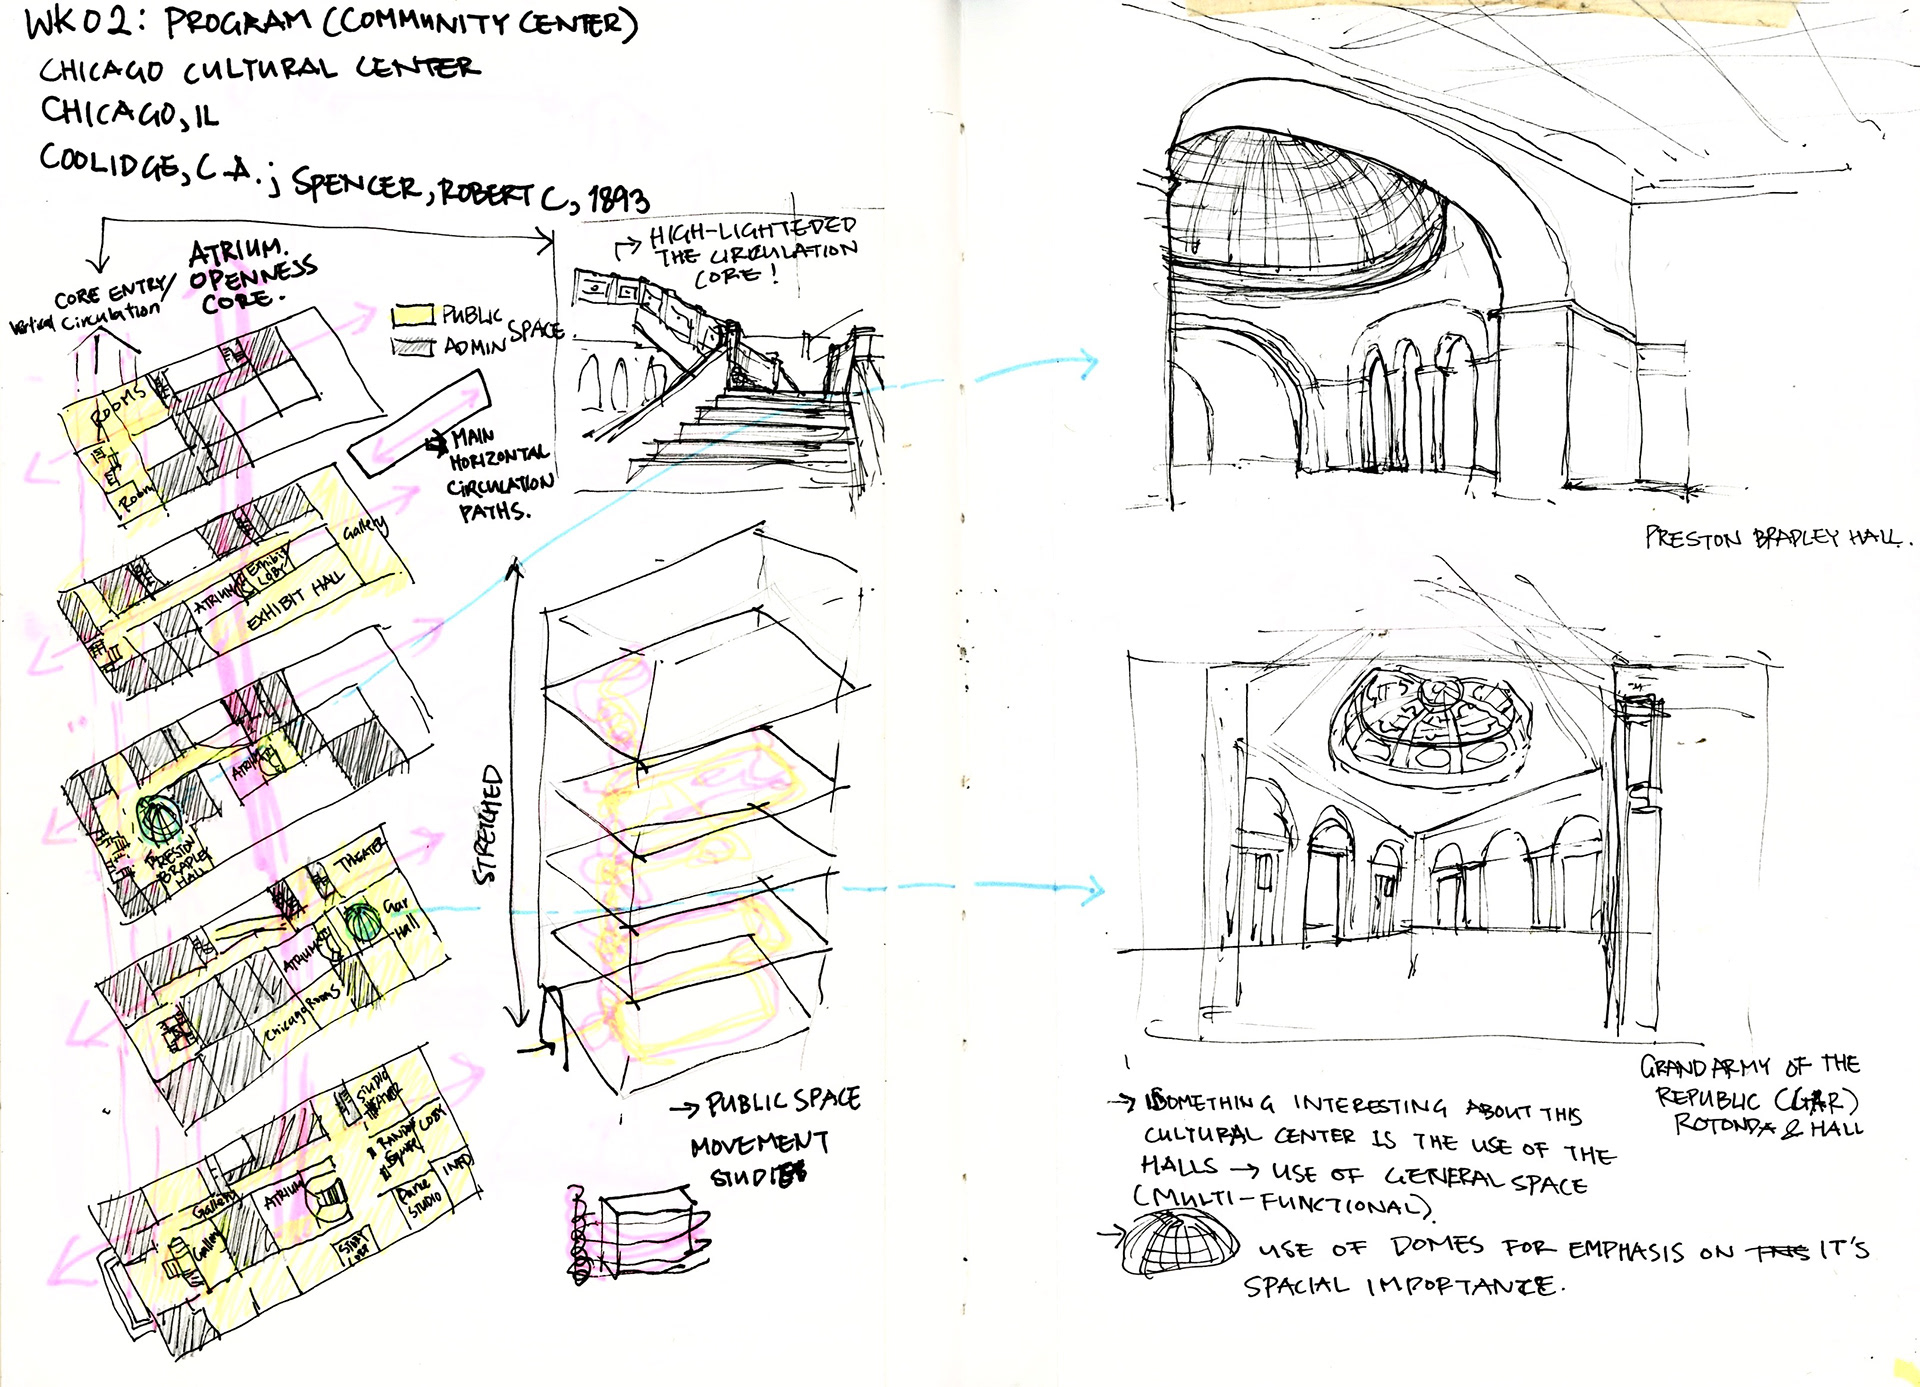 WK02: PROGRAM (COMMUNITY CENTER)
CHICAGO CULTURAL CENTER
CHICAGO, IL
COOLIDGE, C.A.; SPENCER, ROBERT C, 1893
CORE ENTRY/
Vertical Circulation
ATRIUM.
OPENNESS
CORE.
PUBLIC
ADMIN SPACE
MAIN
HORIZONTAL
CIRCULATION
PATHS.
HIGH-LIGHTEDED
THE CIRCULATION
CORE!
ROOMS
Room
Gallery
Exhibit
LOBY
ATRIUM
EXHIBIT HALL
ATRIUM
PRESTON
BRADLEY
HALL
THEATER
Gar
Hall
ATRIUM
Chicago Rooms
STUDIO
THEATER
LOBY
RANDOLPH
Square
INFO
Dance
STUDIO
ATRIUM
Gallery
Gallery
STRETCHED
→ PUBLIC SPACE
MOVEMENT
STUDIES
PRESTON BRADLEY HALL.
GRAND ARMY OF THE
REPUBLIC (GAR)
ROTONDA & HALL
→ SOMETHING INTERESTING ABOUT THIS
CULTURAL CENTER IS THE USE OF THE
HALLS → USE OF GENERAL SPACE
(MULTI-FUNCTIONAL).
→ USE OF DOMES FOR EMPHASIS ON THIS IT'S
SPACIAL IMPORTANCE.